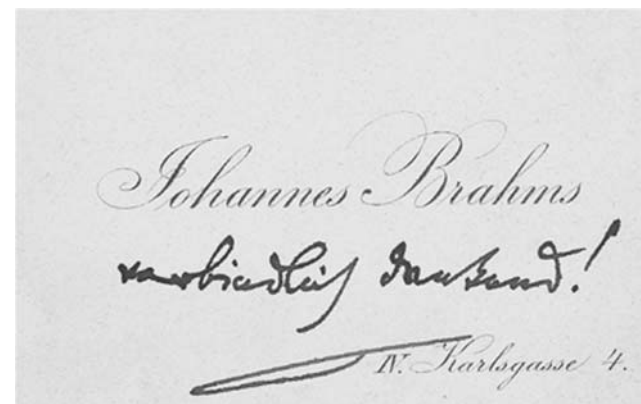 Johannes Brahms
verbindlich dankend!
IV. Karlsgasse 4.